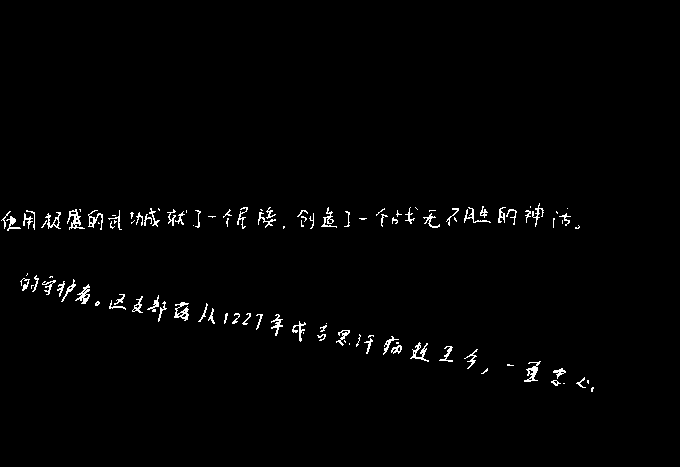 他用极盛的武功成就了一个民族，创造了一个战无不胜的神话。
的守护者。这支部落从1227年成吉思汗病逝至今，一直忠心